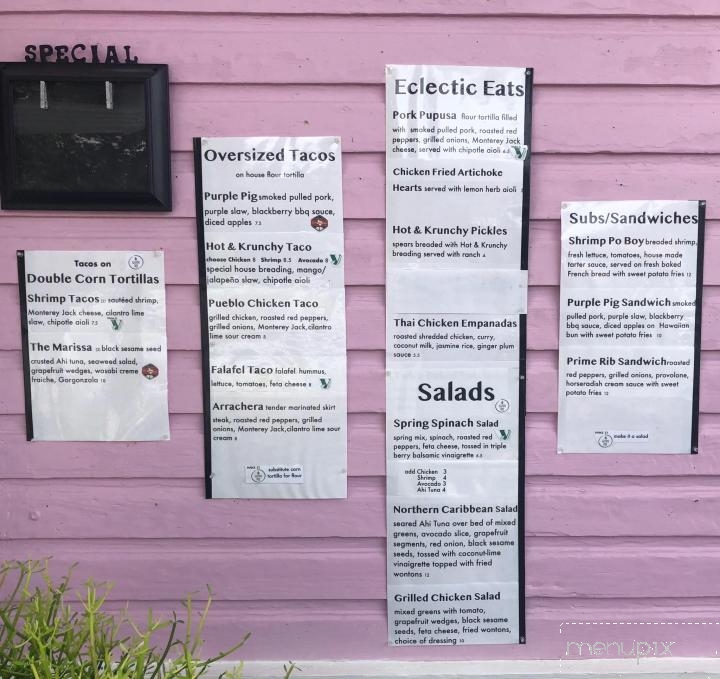 SPECIAL
Tacos on
Double Corn Tortillas
Shrimp Tacos sautéed shrimp,
Monterey Jack cheese, cilantro lime
slaw, chipotle aioli 7.5
The Marissa black sesame seed
crusted Ahi tuna, seaweed salad,
grapefruit wedges, wasabi creme
fraiche, Gorgonzola 10
Oversized Tacos
on house flour tortilla
Purple Pig smoked pulled pork,
purple slaw, blackberry bbq sauce,
diced apples 7.5
Hot & Krunchy Taco
choose Chicken 8 Shrimp 8.5 Avocado 8
special house breading, mango/
jalapeño slaw, chipotle aioli
Pueblo Chicken Taco
grilled chicken, roasted red peppers,
grilled onions, Monterey Jack,cilantro
lime sour cream 8
Falafel Taco falafel hummus,
lettuce, tomatoes, feta cheese 8
Arrachera tender marinated skirt
steak, roasted red peppers, grilled
onions, Monterey Jack,cilantro lime sour
cream 8
substitute corn
tortilla for flour
Eclectic Eats
Pork Pupusa flour tortilla filled
with smoked pulled pork, roasted red
peppers, grilled onions, Monterey Jack
cheese, served with chipotle aioli
Chicken Fried Artichoke
Hearts served with lemon herb aioli
Hot & Krunchy Pickles
spears breaded with Hot & Krunchy
breading served with ranch 4
Thai Chicken Empanadas
roasted shredded chicken, curry,
coconut milk, jasmine rice, ginger plum
sauce 5.5
Salads
Spring Spinach Salad
spring mix, spinach, roasted red
peppers, feta cheese, tossed in triple
berry balsamic vinaigrette
add Chicken 3
Shrimp 4
Avocado 3
Ahi Tuna 4
Northern Caribbean Salad
seared Ahi Tuna over bed of mixed
greens, avocado slice, grapefruit
segments, red onion, black sesame
seeds, tossed with coconut-lime
vinaigrette topped with fried
wontons 12
Grilled Chicken Salad
mixed greens with tomato,
grapefruit wedges, black sesame
seeds, feta cheese, fried wontons,
choice of dressing 10
Subs/Sandwiches
Shrimp Po Boy breaded shrimp,
fresh lettuce, tomatoes, house made
tarter sauce, served on fresh baked
French bread with sweet potato fries 12
Purple Pig Sandwich smoked
pulled pork, purple slaw, blackberry
bbq sauce, diced apples on Hawaiian
bun with sweet potato fries 10
Prime Rib Sandwich roasted
red peppers, grilled onions, provolone,
horseradish cream sauce with sweet
potato fries 12
make it a salad
menupix